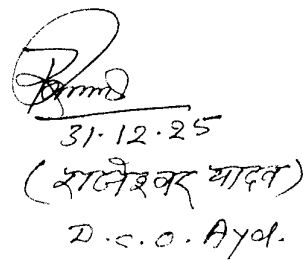 31.12.25
(राजेश्वर यादव)
D.C.O. Ayd.